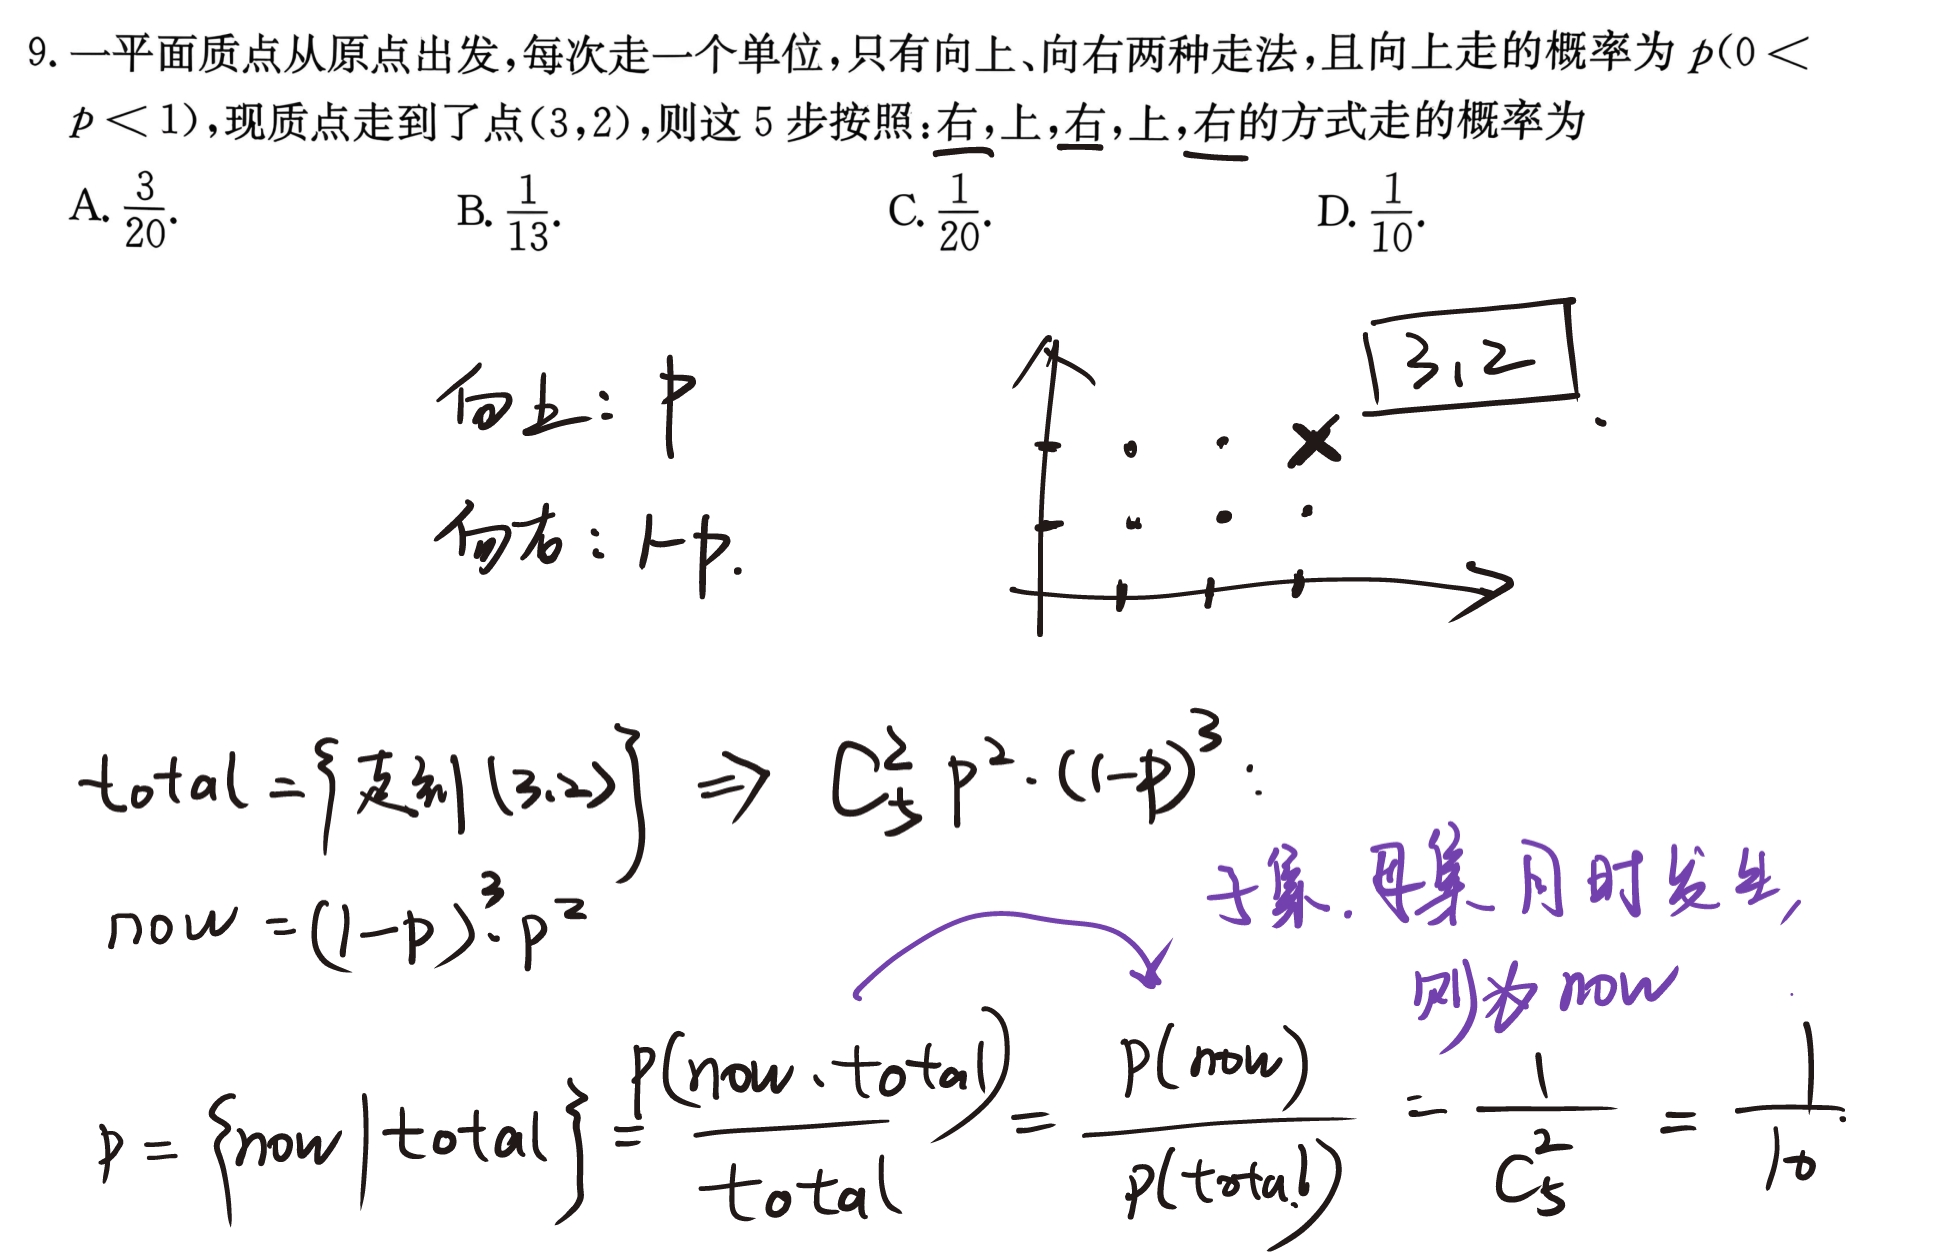 9. 一平面质点从原点出发,每次走一个单位,只有向上、向右两种走法,且向上走的概率为 p(0 <
p < 1),现质点走到了点(3,2),则这 5 步按照:右,上,右,上,右的方式走的概率为
A. 3/20. B. 1/13. C. 1/20. D. 1/10.
3,2
向上: p
向右: 1-p.
total = {走到(3,2)} ⇒ C₅² p²·(1-p)³ :
now = (1-p)³·p²
子集.母集同时发生,
则为now
p = {now|total} = p(now、total)/total = p(now)/p(total) = 1/C₅² = 1/10.